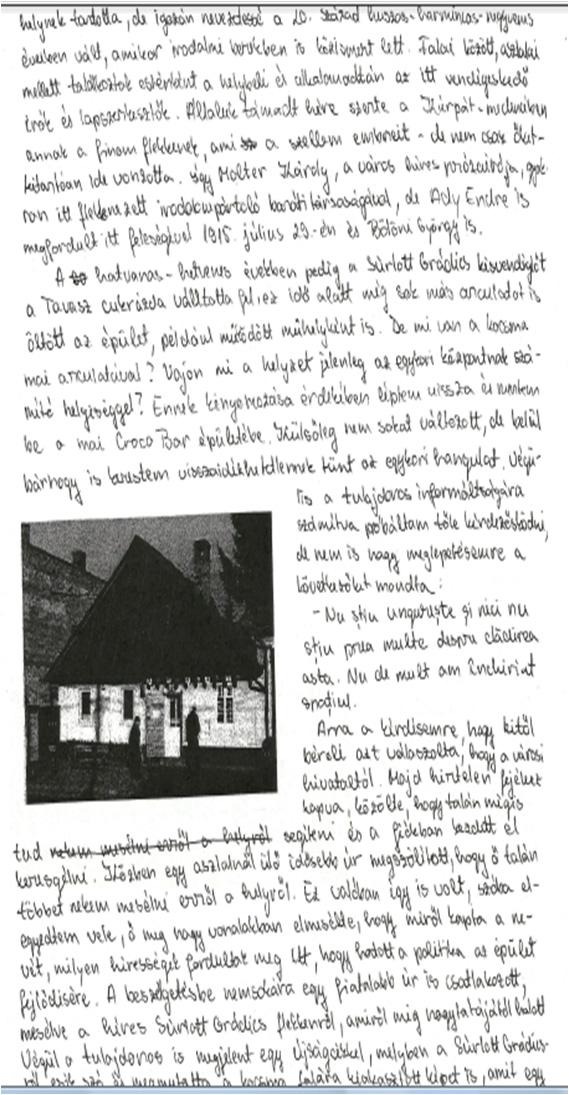 helynek tartotta, de igazán nevezetessé a 20. század huszas-harmincas-negyvenes
éveiben vált, amikor irodalmi berkekben is közismert lett. Falai között, asztalai
mellett találkoztak esténként a helybeli és alkalomadtán az itt vendégeskedő
írók és lapszerkesztők. Általuk támadt híre szerte a Kárpát-medencében
annak a finom flekkennek, ami a szellem embereit - de nem csak őket -
kitartóan ide vonzotta. Így Molter Károly, a város híres prózaírója, gyak-
ran itt flekkenezett irodalompártoló baráti társaságával, de Ady Endre is
megfordult itt feleségével 1915. július 29.-én és Bölöni György is.
A hatvanas-hetvenes években pedig a Súrlott Grádics kisvendéglőt
a Tavasz cukrázda váltotta fel, ez idő alatt még sok más arculatot is
öltött az épület, például működött műhelyként is. De mi van a kocsma
mai arculatával? Vajon mi a helyzet jelenleg az egykori központnak szá-
mító helyiséggel? Ennek kinyomozása érdekében léptem vissza és mentem
be a mai Croco Bar épületébe. Külsőleg nem sokat változott, de belül
bárhogy is kerestem visszaidézhetetlennek tűnt az egykori hangulat. Végü-
lis a tulajdonos informáltságára
számítva próbáltam tőle kérdezősködni,
de nem is nagy meglepetésemre a
következőket mondta:
- Nu știu ungurește și nici nu
știu prea multe despre clădirea
asta. Nu de mult am închiriat
spațiul.
Arra a kérdésemre, hogy kitől
bérli azt válaszolta, hogy a városi
hivataltól. Majd hirtelen
kapva, közölte, hogy talán mégis
tud nekem mesélni erről a helyről segíteni és a fiókban kezdett el
keresgélni. Közben egy asztalnál ülő idősebb úr megszólított, hogy ő talán
többet nekem mesélni erről a helyről. Ez valóban így is volt, szóba el-
egyedtem vele, ő meg nagy vonalakban elmesélte, hogy miről kapta a ne-
vét, milyen hírességek fordultak meg itt, hogy hatott a politika az épület
fejlődésére. A beszélgetésbe nemsokára egy fiatalabb úr is csatlakozott,
mesélve a híres Súrlott Grádics flekkenről, amiről még nagytatájától hallott
Végül a tulajdonos is megjelent egy újságcikkel, melyben a Súrlott Grádics-
ról esik szó és megmutatta a kocsma falára kiakasztott képet is, amit egy